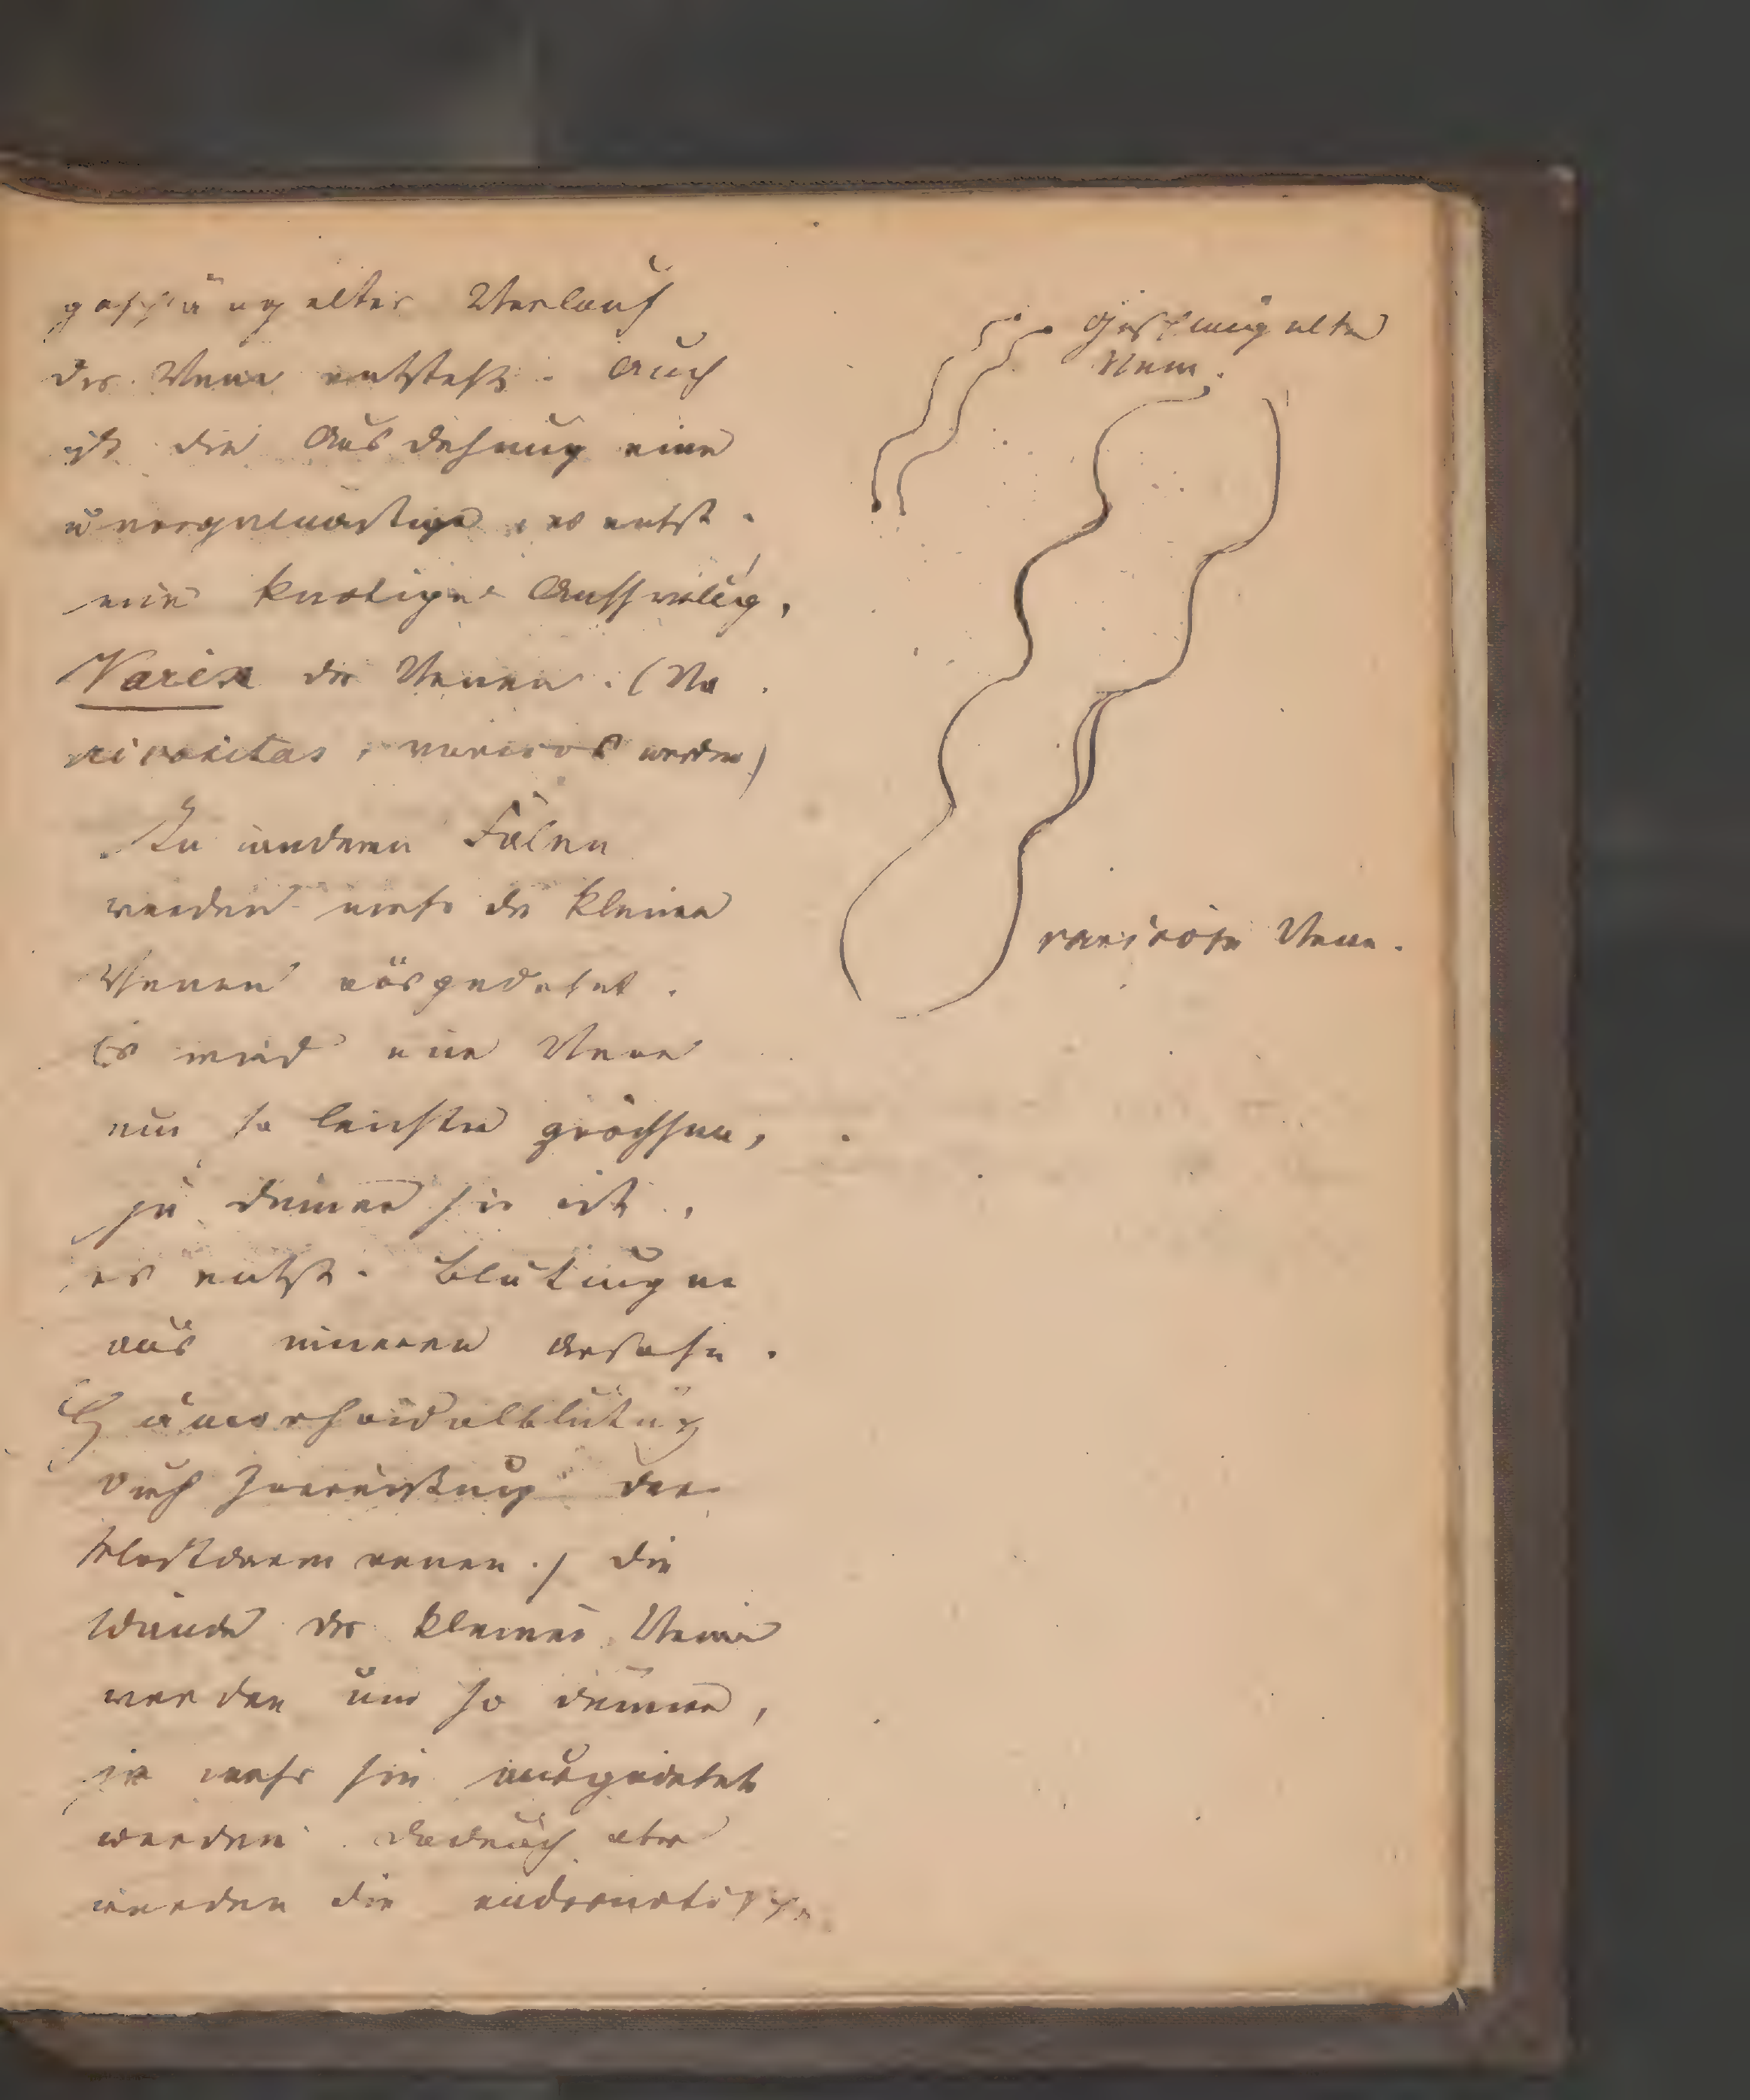 geschlängelter Verlauf
der Vene entsteht. Auch
ist die Ausdehnung eine
unregelmässige, es entst.
eine knotige Anschwellg,
Varix der Venen. (Va
ricositas, varicos werden)
In anderen Fälen
werden mehr die kleinen
Venen ausgedehnt.
Es wird eine Vene
um so leichter
je dünner sie ist,
es entst. Blutungen
aus inneren
Hämorrhoidalblutung
durch Zerreissung der
Mastdarmvenen.) Die
Wände der kleinen Venen
werden um so dünner,
je mehr sie ausgedehnt
werden. Dadurch aber
werden die endosmotisch.
Geschlängelte
Vene.
varicöse Vene.